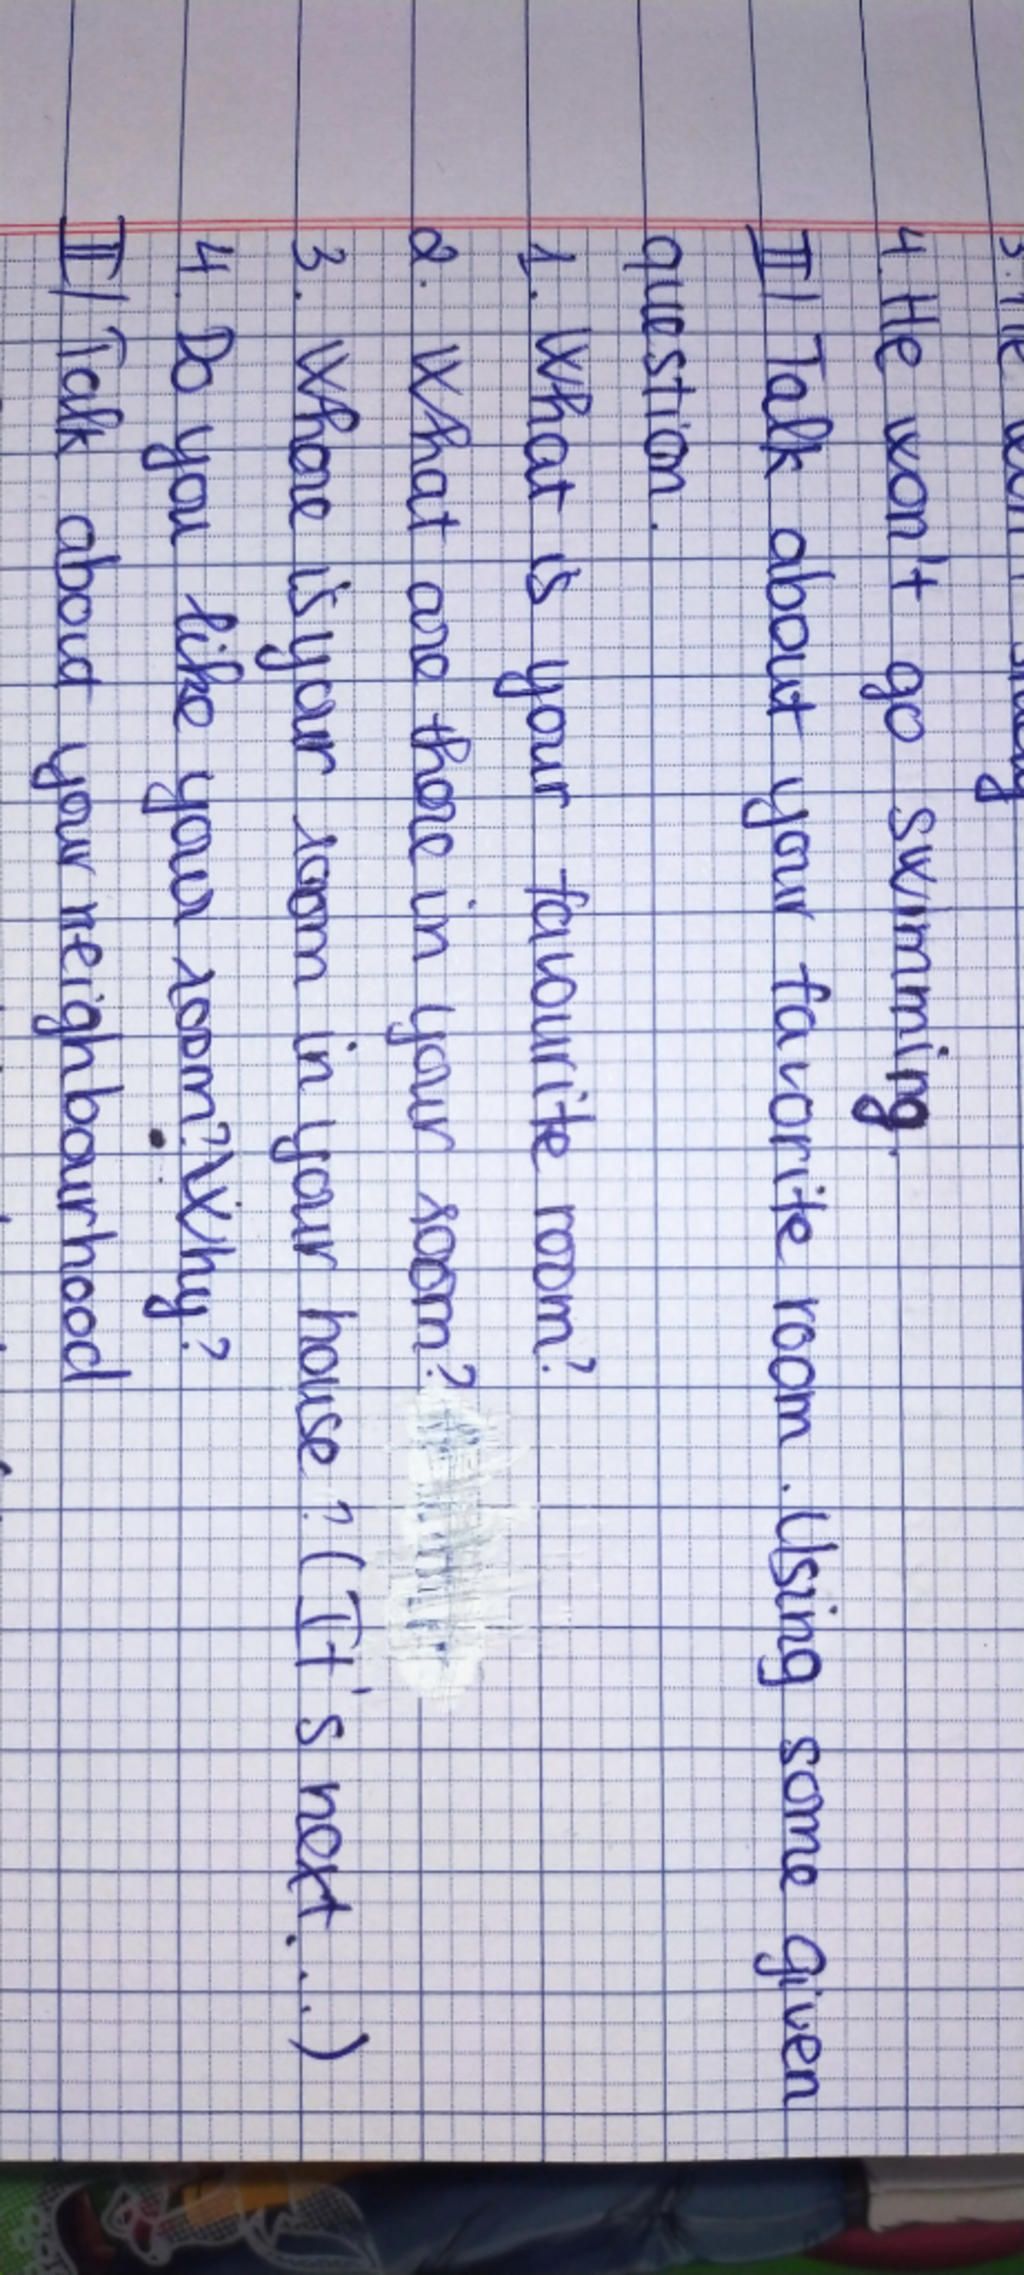 4. He won't go swimming.
II/ Talk about your favorite room. Using some given
question.
1. What is your favourite room?
2. What are there in your room?
3. Where is your room in your house? (It's next...)
4. Do you like your room? Why?
II/ Talk about your neighbourhood